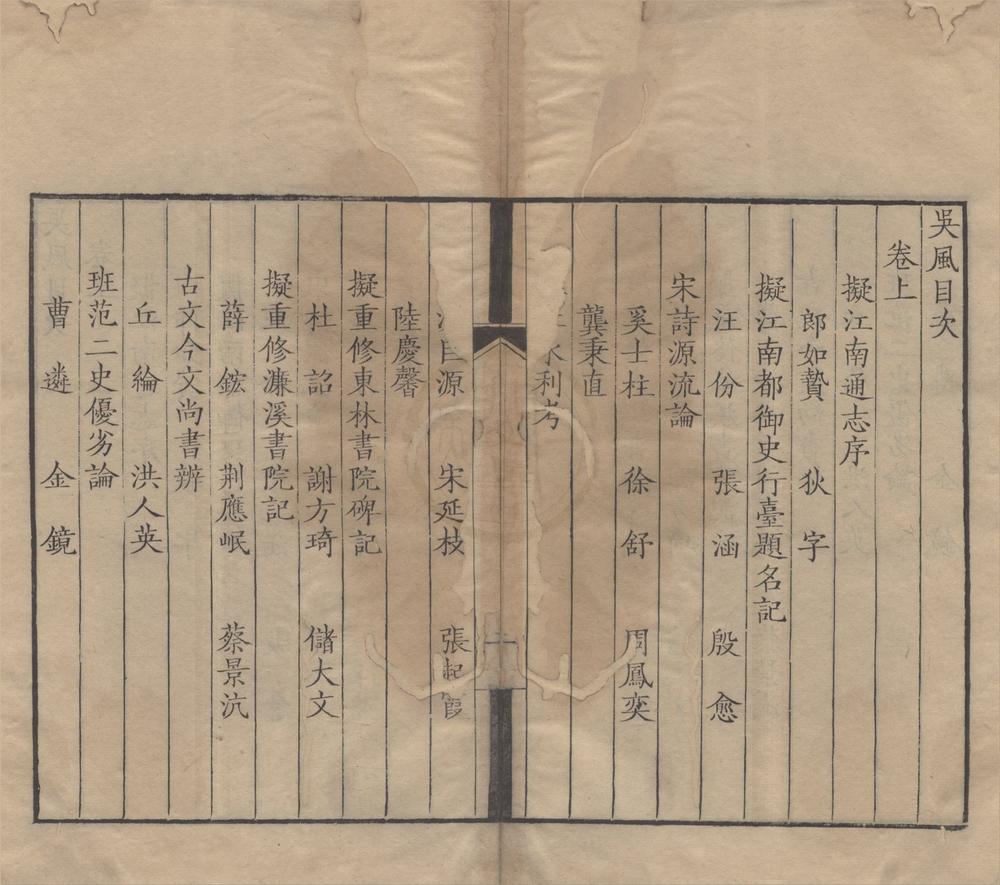 吳風目次
卷上
擬江南通志序
郎如贄 狄字
擬江南都御史行臺題名記
汪份 張涵 殷愈
宋詩源流論
奚士柱 徐舒 周鳳奕
龔秉直
水利考
源 宋延枝 張起霞
陸慶馨
擬重修東林書院碑記
杜詔 謝方琦 儲大文
擬重修濂溪書院記
薛鋐 荆應岷 蔡景沆
古文今文尚書辨
丘綸 洪人英
班范二史優劣論
曹遴 金鏡